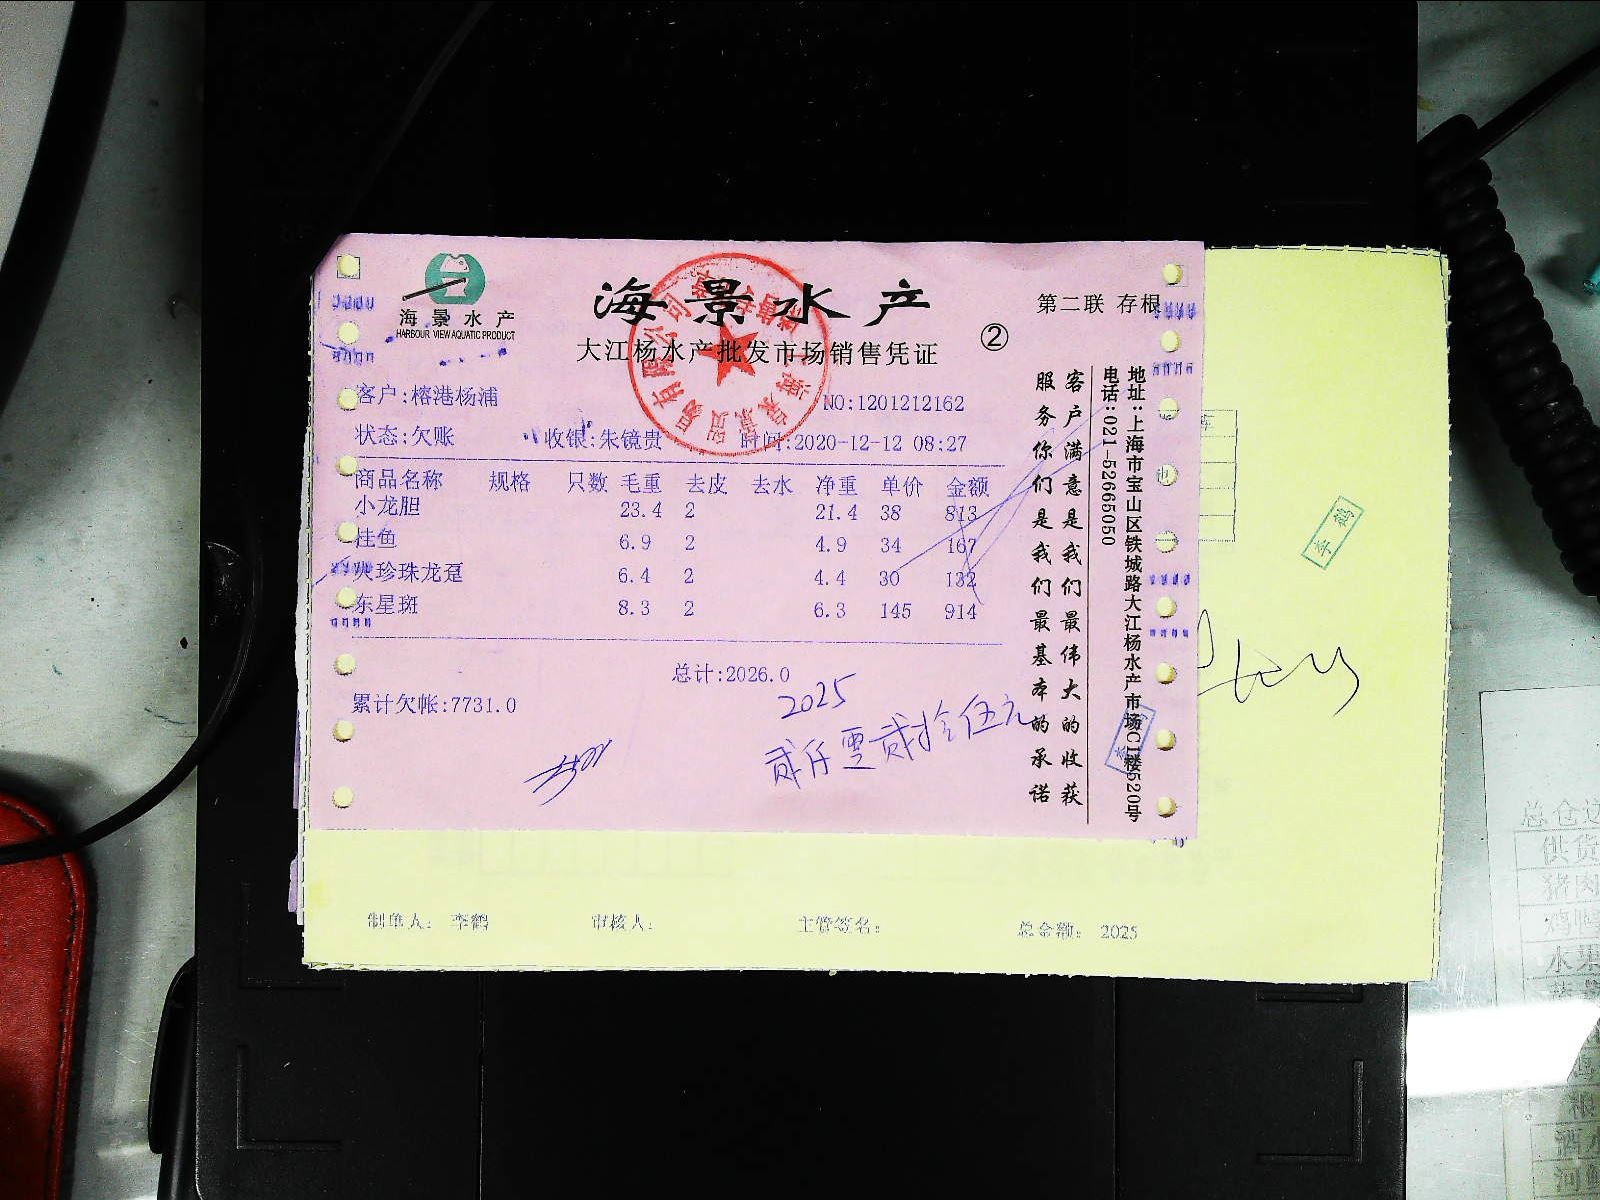 海景水产
HARBOUR VIEW AQUATIC PRODUCT
海景水产
大江杨水产批发市场销售凭证
②
第二联 存根
客户:榕港杨浦
NO:1201212162
状态:欠账 收银:朱镜贵 时间:2020-12-12 08:27
商品名称 规格 只数 毛重 去皮 去水 净重 单价 金额
小龙胆 23.4 2 21.4 38 813
桂鱼 6.9 2 4.9 34 167
珍珠龙趸 6.4 2 4.4 30 132
东星斑 8.3 2 6.3 145 914
总计:2026.0
累计欠帐:7731.0
2025
贰仟零贰拾伍元
客户满意是我们最伟大的收获
服务你们是我们最基本的承诺
地址:上海市宝山区铁城路大江杨水产市场C1楼520号
电话:021-52665050
李鹤
制单人: 李鹤 审核人: 主管签名: 总金额: 2025
供货
猪肉
水果